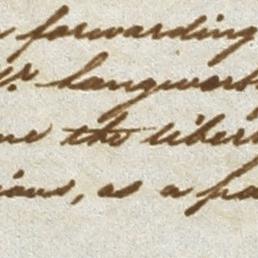 forwarding
Mr. Langworth
me the libert
ious, as a pa